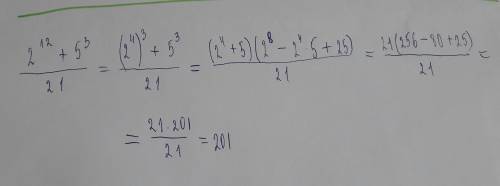 (2^12 + 5^3)/21 = ((2^4)^3 + 5^3)/21 = ((2^4 + 5)(2^8 − 2^4·5 + 25))/21 = (21(256 − 80 + 25))/21 =
= (21·201)/21 = 201